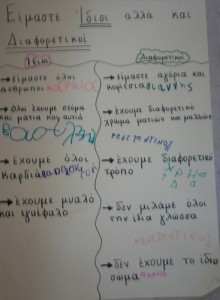 Είμαστε Ίδιοι αλλά και
Διαφορετικοί
Ίδιοι
→είμαστε όλοι
άνθρωποι ΜΑΡΙΑ
→Όλοι έχουμε στόμα
και μάτια και αυτιά
Βασιλική
→έχουμε όλοι
καρδιά
→έχουμε μυαλό
και εγκέφαλο
Διαφορετικοί
→είμαστε αγόρια και
κορίτσια Γιάννης
→έχουμε διαφορετικό
χρώμα ματιών και μαλλιών
ΚΩΝΣΤΑΝΤΙΝΟΣ
→έχουμε διαφορετικό
τροπο
→δεν μιλάμε όλοι
την ίδια γλώσσα
ΚΩΝΣΤΑΝΤΙΝΟΣ
→δεν έχουμε το ίδιο
σώμα ΜΑΡΙΑ